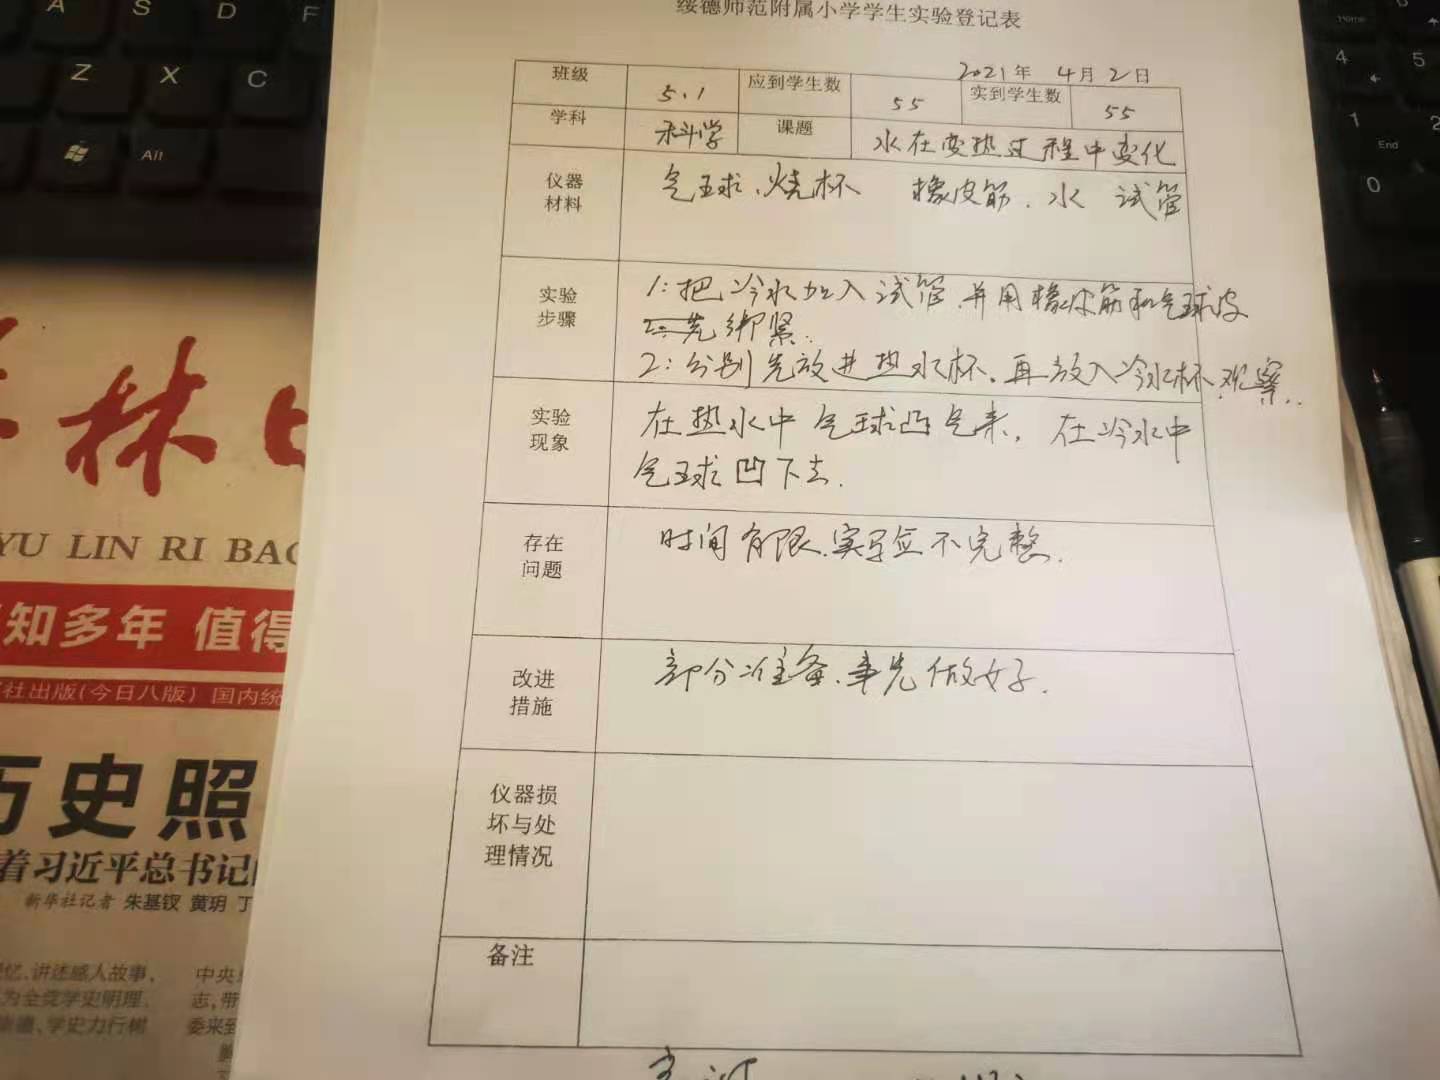 A S D F
Z X C
Alt
Home
4 5
1 2
End
0
绥德师范附属小学学生实验登记表
2021年 4月2日
班级 5.1 应到学生数 55 实到学生数 55
学科 科学 课题 水在变热过程中变化
仪器 气球、烧杯 橡皮筋、水 试管
材料
实验 1:把冷水加入试管并用橡皮筋和气球皮
步骤 绑紧.
2:分别先放进热水杯、再放入冷水杯观察..
实验 在热水中气球凸气来,在冷水中
现象 气球凹下去.
存在 时间有限、实验不完整.
问题
改进 部分准备、事先做好.
措施
仪器损
坏与处
理情况
备注
林日
YU LIN RI BAO
知多年 值得
社出版(今日八版) 国内统
历史照
着习近平总书记
新华社记者 朱基钗 黄玥 丁
忆、讲述感人故事、
为全党学史明理、
学史力行树
中央
志,带
委来到